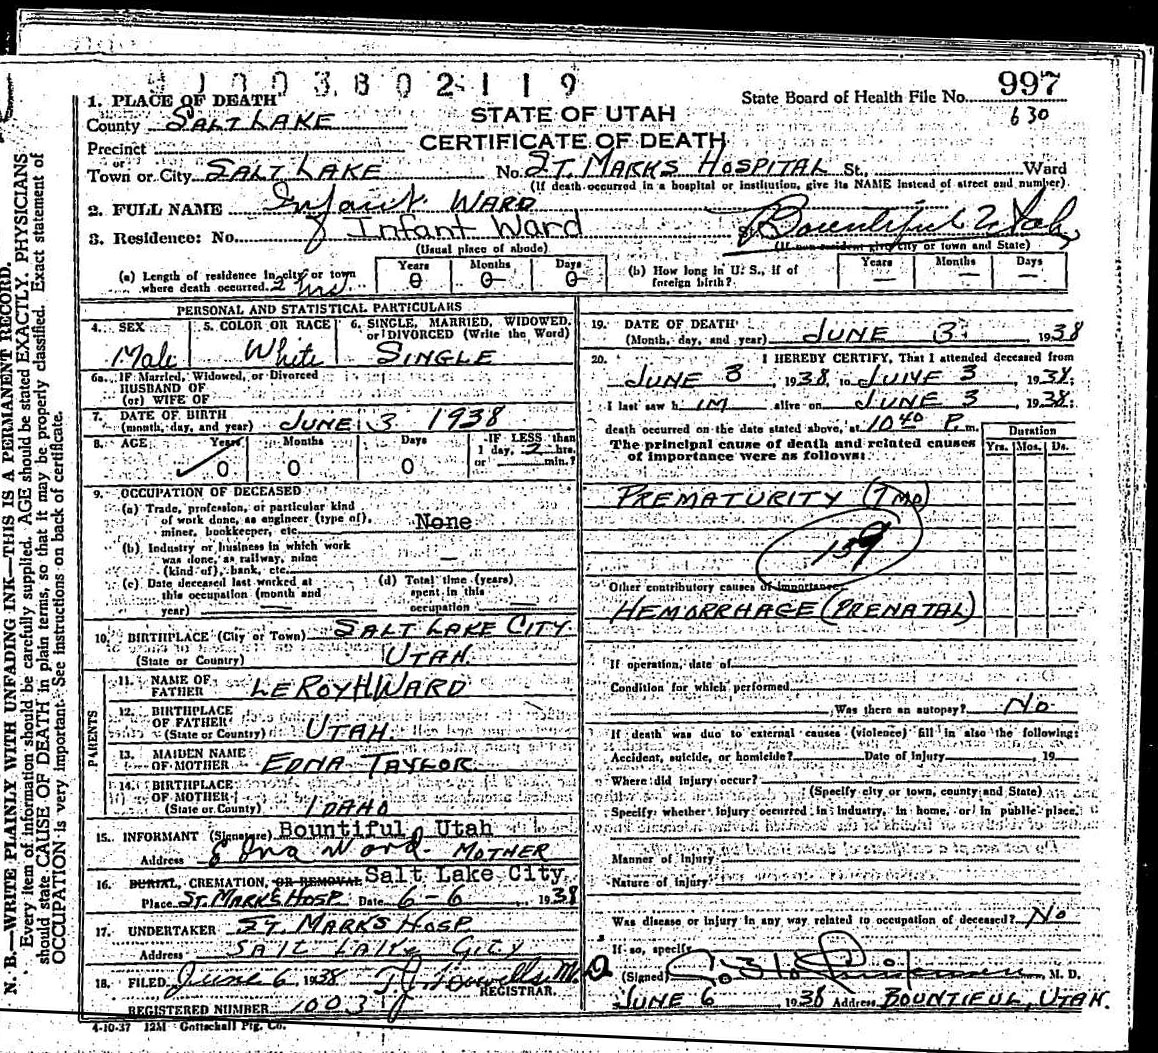 997
State Board of Health File No.
630
STATE OF UTAH
CERTIFICATE OF DEATH
1. PLACE OF DEATH
County SALT LAKE
Precinct
or
Town or City SALT LAKE No. ST. MARKS HOSPITAL St., Ward
(If death occurred in a hospital or institution, give its NAME instead of street and number)
2. FULL NAME Infant WARD
3. Residence: No. Infant Ward St. Bountiful Utah
(Usual place of abode) (If non-resident give city or town and State)
(a) Length of residence in city or town where death occurred. 2 hrs Years 0 Months 0 Days 0
(b) How long in U. S., if of foreign birth? Years — Months — Days —
PERSONAL AND STATISTICAL PARTICULARS
4. SEX Male
5. COLOR OR RACE White
6. SINGLE, MARRIED, WIDOWED, or DIVORCED (Write the Word) SINGLE
6a. IF Married, Widowed, or Divorced
HUSBAND OF
(or) WIFE OF
7. DATE OF BIRTH
(month, day, and year) JUNE 3 1938
8. AGE Years 0 Months 0 Days 0 IF LESS than 1 day, 2 hrs. or min.?
9. OCCUPATION OF DECEASED
(a) Trade, profession, or particular kind of work done, as engineer (type of), miner, bookkeeper, etc. None
(b) Industry or business in which work was done, as railway, mine (kind of), bank, etc. —
(c) Date deceased last worked at this occupation (month and year) —
(d) Total time (years) spent in this occupation —
10. BIRTHPLACE (City or Town) SALT LAKE CITY
(State or Country) UTAH
PARENTS
11. NAME OF FATHER LEROY H WARD
12. BIRTHPLACE OF FATHER
(State or Country) UTAH
13. MAIDEN NAME OF MOTHER EDNA TAYLOR
14. BIRTHPLACE OF MOTHER
(State or County) IDAHO
15. INFORMANT (Signature) Bountiful, Utah
Address Edna Ward MOTHER
16. BURIAL, CREMATION, OR REMOVAL Salt Lake City
Place ST. MARKS HOSP. Date 6-6, 1938
17. UNDERTAKER ST. MARKS HOSP.
Address SALT LAKE CITY
18. FILED June 6 1938
REGISTRAR.
REGISTERED NUMBER 1003
4-10-37 12M Gottschall Ptg. Co.
19. DATE OF DEATH
(Month, day, and year) JUNE 3, 1938
20. I HEREBY CERTIFY, That I attended deceased from
JUNE 3, 1938, to JUNE 3, 1938;
I last saw h IM alive on JUNE 3, 1938;
death occurred on the date stated above, at 10 40 P. m.
The principal cause of death and related causes of importance were as follows:
Duration
Yrs. Mos. Ds.
PREMATURITY (7 MO)
159
Other contributory causes of importance
HEMORRHAGE (PRENATAL)
If operation, date of
Condition for which performed
Was there an autopsy? No
If death was due to external causes (violence) fill in also the following:
Accident, suicide, or homicide? Date of injury , 19
Where did injury occur?
(Specify city or town, county and State)
Specify whether injury occurred in industry, in home, or in public place.
Manner of injury
Nature of injury
Was disease or injury in any way related to occupation of deceased? No
If so, specify
(Signed) M. D.
JUNE 6 1938 Address BOUNTIFUL, UTAH.
N. B.—WRITE PLAINLY WITH UNFADING INK—THIS IS A PERMANENT RECORD.
Every item of information should be carefully supplied. AGE should be stated EXACTLY. PHYSICIANS
should state CAUSE OF DEATH in plain terms, so that it may be properly classified. Exact statement of
OCCUPATION is very important. See instructions on back of certificate.